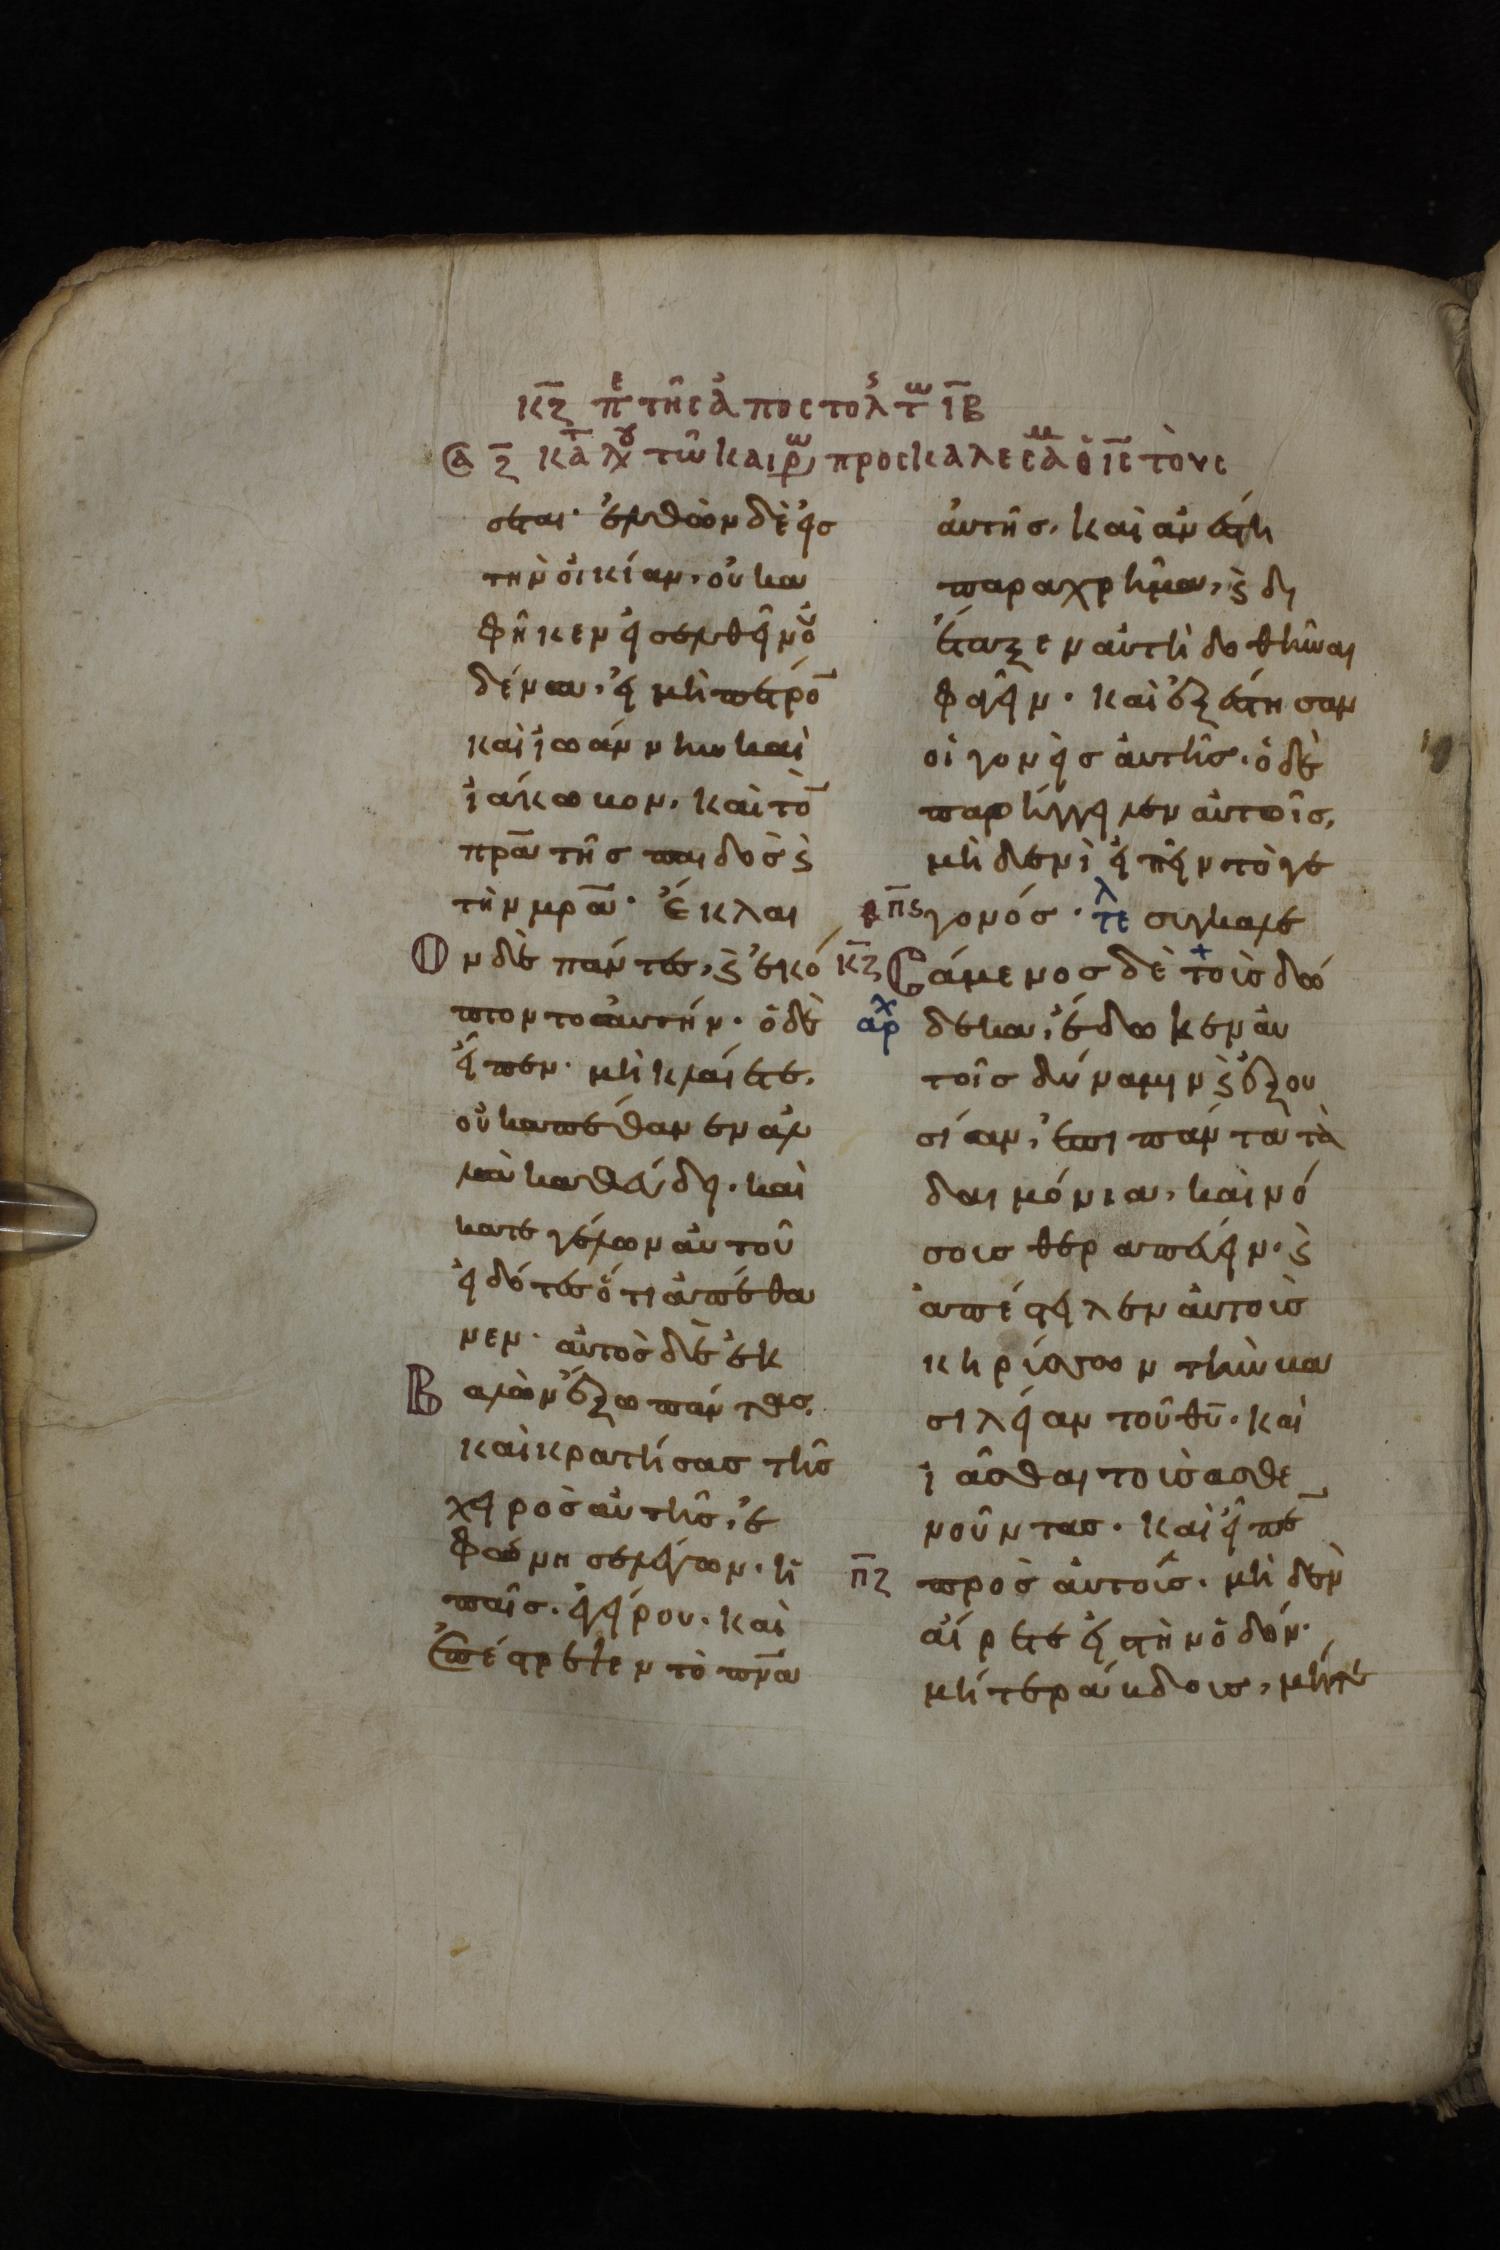 κζ πε τῆς ἀποστολς τω ιβ
α ζ κατ λγ τῶ καιρω προσκαλεσαμ ὁ ις τοὺς
σεται· ἐλθὼν δὲ εἰς
τὴν οἰκίαν, οὐκ α
φῆκεν εἰσελθεῖν οὐ
δένα, εἰ μὴ πέτρο̅
καὶ ἰωάννην καὶ
ἰάκωβον, καὶ τὸ̅
πρ̅α τῆς παιδὸς ϗ
τὴν μρ̅α· ἔκλαι
Ον δὲ πάντες, ϗ ἐκό
πτοντο αὐτήν· ὁ δὲ
εἶπεν· μὴ κλαίετε,
οὐκ ἀπέθανεν ἀλ
λὰ καθεύδει· καὶ
κατεγέλων αὐτοῦ
εἰδότες ὅτι ἀπέθα
νεν· αὐτὸς δὲ ἐκ
Βαλὼν ἔξω πάντας,
καὶ κρατήσας τῆς
χειρὸς αὐτῆς, ἐ
φώνησε λέγων· ἡ
παῖς· ἐγείρου· καὶ
ἐπέστρεψεν τὸ πν̅α
αὐτῆς, καὶ ἀνέστη
παραχρῆμα, ϗ δι
έταξεν αὐτῇ δοθῆναι
φαγεῖν· καὶ ἐξέστησαν
οἱ γονεῖς αὐτῆς· ὁ δὲ
παρήγγειλεν αὐτοῖς,
μηδενὶ εἰπεῖν τὸ γε
π̅ς γονός· τελ συγκαλε
κ̅ζ Σάμενος δὲ τοὺς δώ
αρχ δεκα, ἔδωκεν αὐ
τοῖς δύναμιν ϗ ἐξου
σίαν, ἐπὶ πάντα τὰ
δαιμόνια, καὶ νό
σους θεραπεύειν· ϗ
ἀπέστειλεν αὐτοὺς
κηρύσσων τὴν βα
σιλείαν τοῦ θυ̅· καὶ
ἰᾶσθαι τοὺς ασθε
νοῦντας· καὶ εἶπε̅
π̅ζ πρὸς αὐτούς· μηδὲν
αἴρετε εἰς τὴν ὁδόν·
μήτε ράβδους, μήτε